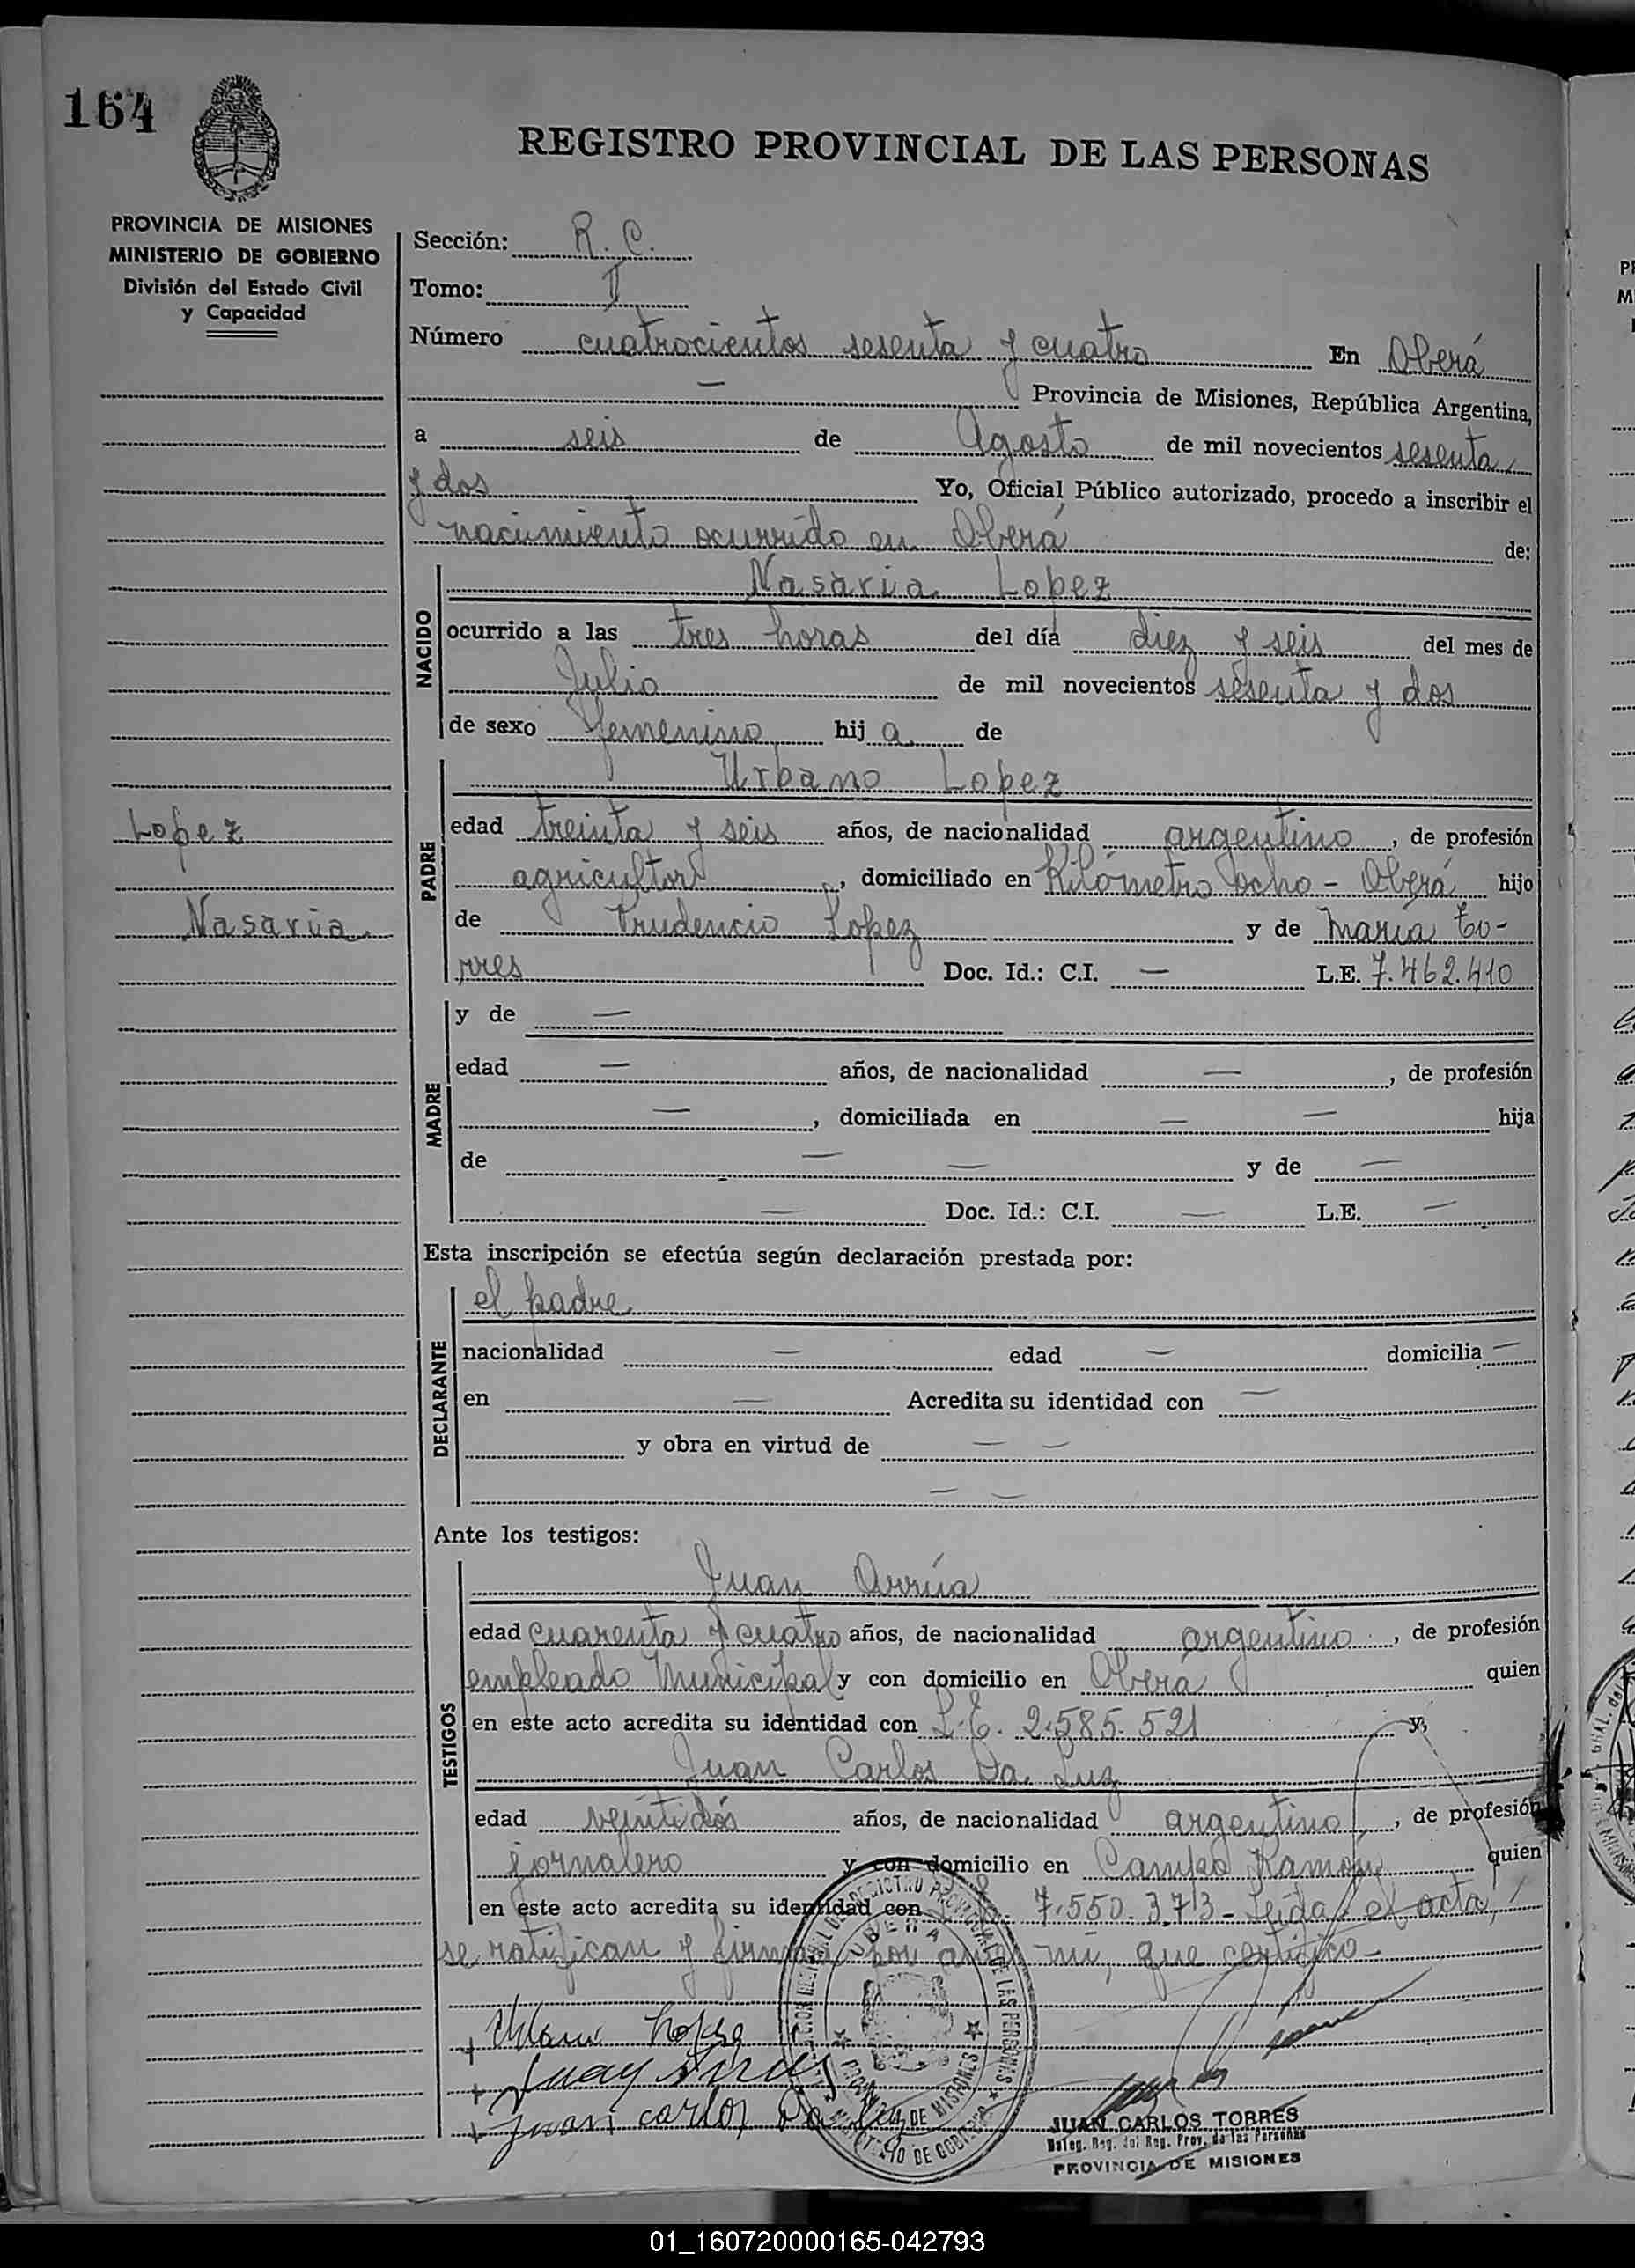 164
REGISTRO PROVINCIAL DE LAS PERSONAS
PROVINCIA DE MISIONES
MINISTERIO DE GOBIERNO
División del Estado Civil
y Capacidad
Sección: R. C.
Tomo: II
Número cuatrocientos sesenta y cuatro En Oberá
— Provincia de Misiones, República Argentina,
a seis de Agosto de mil novecientos sesenta
y dos Yo, Oficial Público autorizado, procedo a inscribir el
nacimiento ocurrido en Oberá de:
NACIDO
Nasaria Lopez
ocurrido a las tres horas del día diez y seis del mes de
Julio de mil novecientos sesenta y dos
de sexo femenino hij a de
PADRE
Urbano Lopez
Lopez
edad treinta y seis años, de nacionalidad argentino, de profesión
agricultor, domiciliado en Kilómetro ocho - Oberá hijo
Nasaria
de Prudencio Lopez y de María To-
rres Doc. Id.: C.I. — L.E. 7.462.410
MADRE
y de —
edad — años, de nacionalidad —, de profesión
—, domiciliada en — — hija
de — — y de —
— Doc. Id.: C.I. — L.E. —
Esta inscripción se efectúa según declaración prestada por:
DECLARANTE
el padre
nacionalidad — edad — domicilia —
en — Acredita su identidad con —
y obra en virtud de — —
— —
Ante los testigos:
TESTIGOS
Juan Arrúa
edad cuarenta y cuatro años, de nacionalidad argentino, de profesión
empleado Municipal y con domicilio en Oberá quien
en este acto acredita su identidad con L.E. 2.585.521 y,
Juan Carlos Da Luz
edad veintidós años, de nacionalidad argentino, de profesión
jornalero y con domicilio en Campo Ramón quien
en este acto acredita su identidad con 7.550.373 - Leída el acta,
se ratifican y firman por ante mí, que certifico -
Lopez
Juan
Juan Carlos Da Luz
OBERA
PROVINCIA DE MISIONES
MINISTERIO DE GOBIERNO
JUAN CARLOS TORRES
Deleg. Reg. del Reg. Prov. de las Personas
PROVINCIA DE MISIONES
01_160720000165-042793